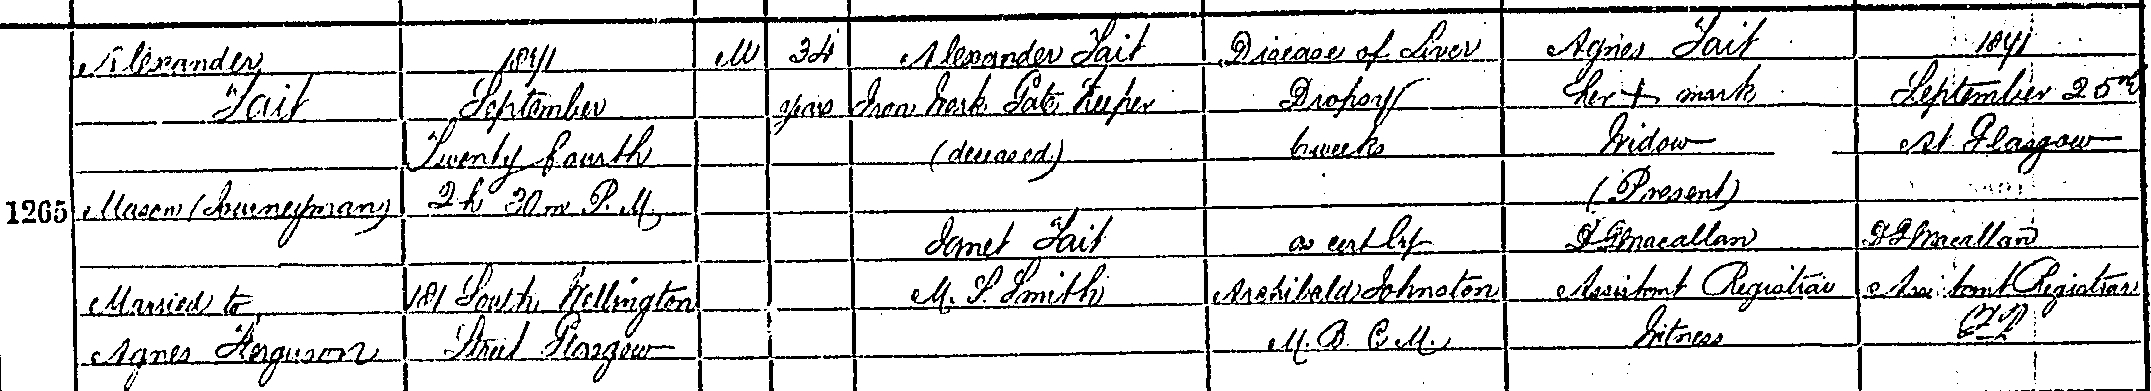 1265
Alexander
Tait
Mason (Journeyman)
Married to
Agnes Ferguson
1891
September
Twenty fourth
2h 30m P.M.
181 South Wellington
Street Glasgow
M
34
years
Alexander Tait
Iron Work Gate Keeper
(deceased)
Janet Tait
M.S. Smith
Disease of Liver
Dropsy
6 weeks
as cert by
Archibald Johnston
M.B. C.M.
Agnes Tait
her + mark
Widow
(Present)
Macallan
Assistant Registrar
Witness
1891
September 25th
At Glasgow
Macallan
Assistant Registrar